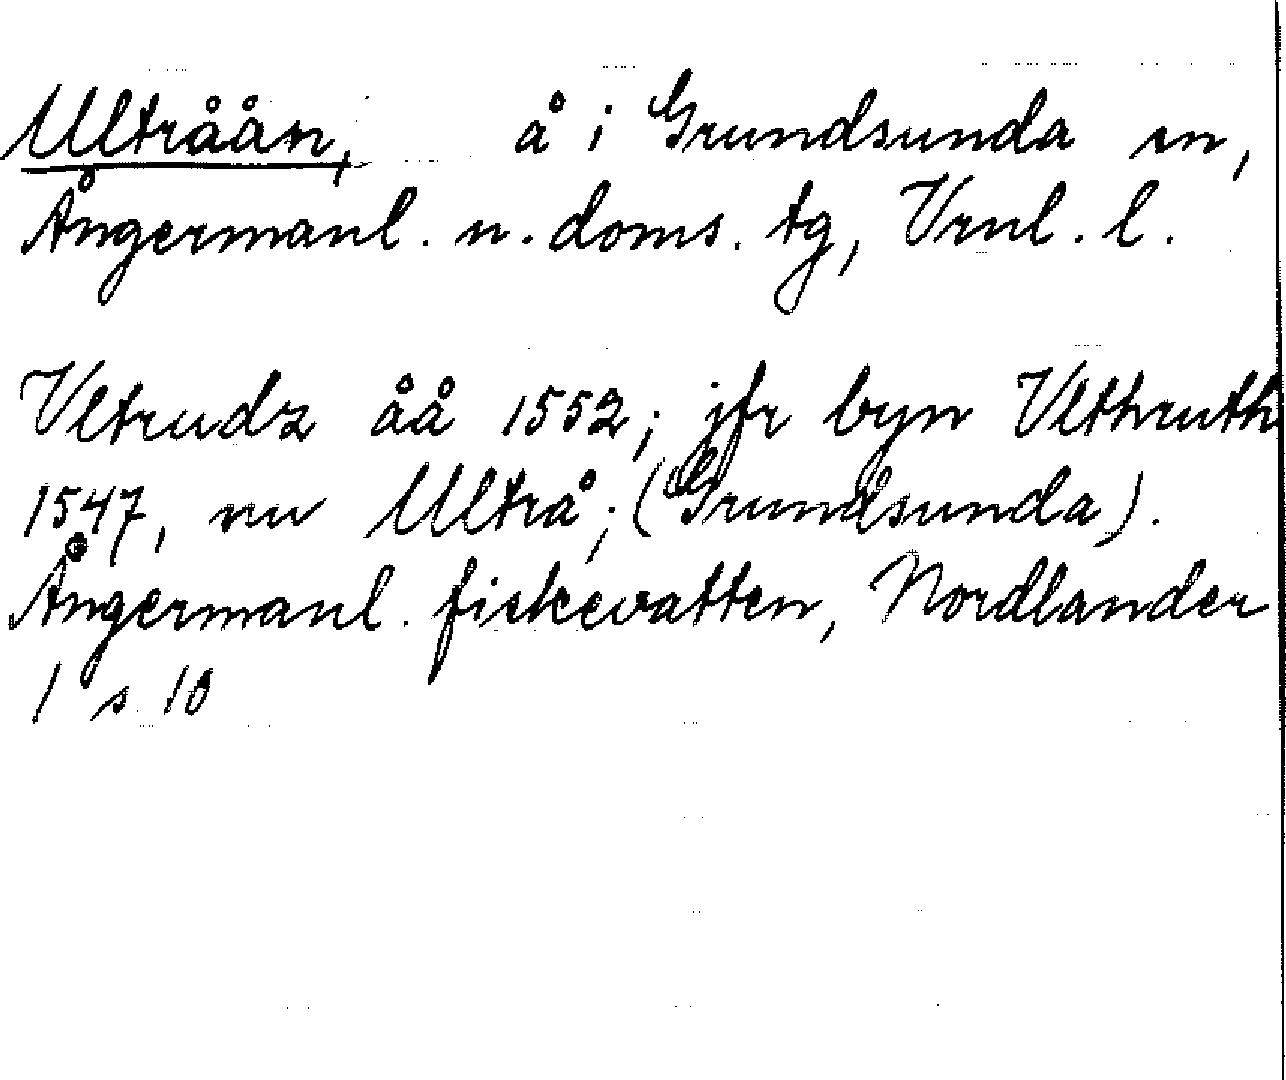 Ultråån, å i Grundsunda sn,
Ångermanl. n. doms. tg, Vrnl. l.
Vltrudz åå 1552; jfr byn Vlthruth
1547, nu Ultrå; (Grundsunda).
Ångermanl. fiskevatten, Nordlander
1 s 10